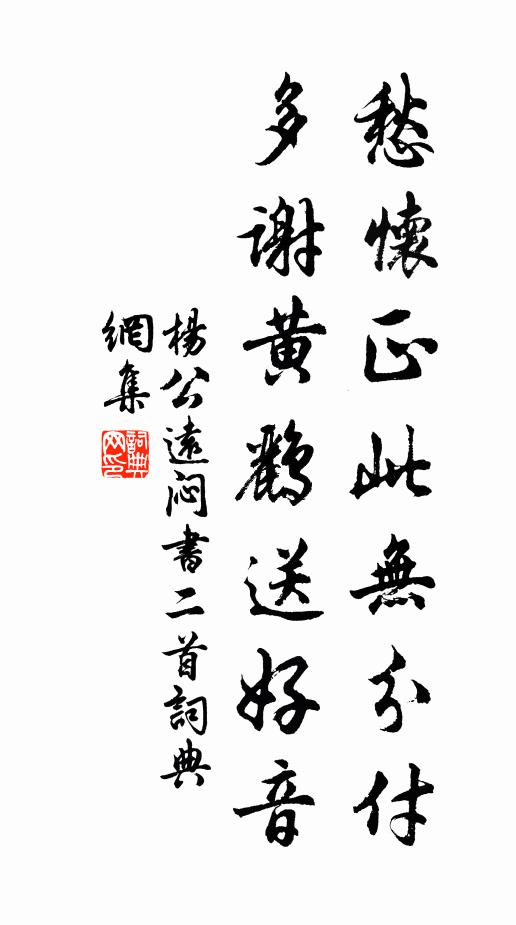 愁懷正此無分付
多謝黃鸝送好音
楊公遠悶書二首詞典
網集
詞典
网印